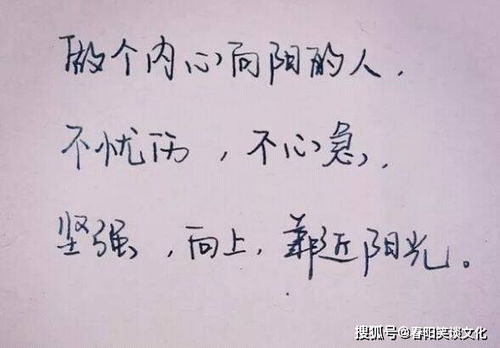 做个内心向阳的人.
不忧伤,不心急,
坚强,向上,靠近阳光。
搜狐号@春阳笑谈文化